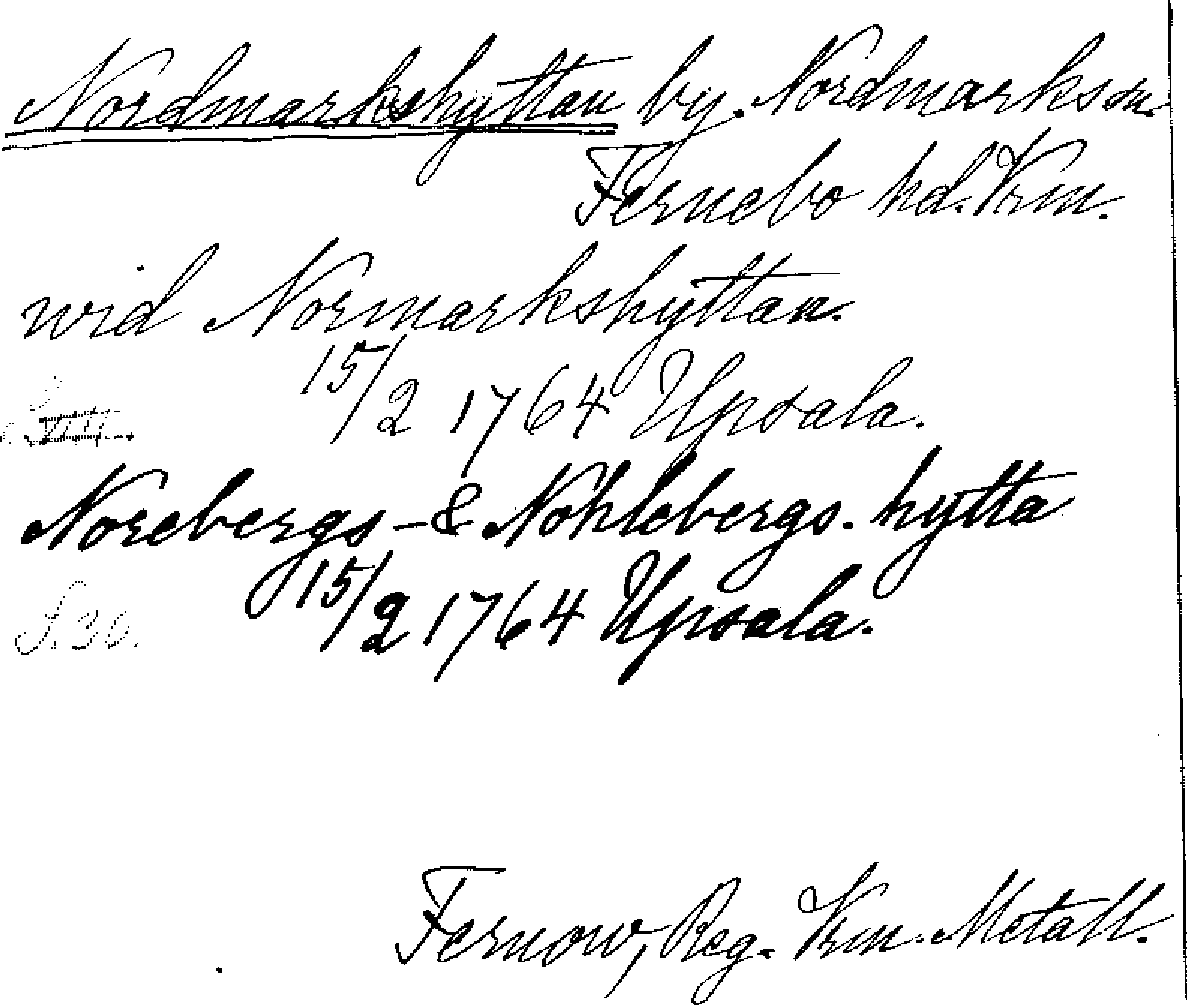 Nordmarkshyttan by. Nordmarks sn.
Fernebo hd. Vrm.
wid Normarkshyttan.
15/2 1764 Upsala.
Norebergs- & Nohlebergs. hytta
15/2 1764 Upsala.
S. 30.
Fernow, Reg. Vrm. Metall.